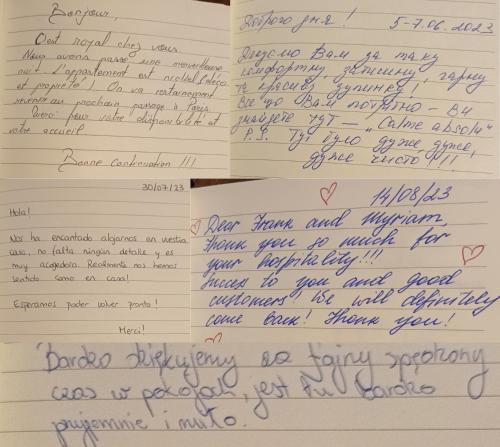 Bonjour,
C'est royal chez vous.
Nous avons passé une merveilleuse
nuit. L'appartement est nickel (déco
et propreté)! On va certainement
revenir au prochain passage à Paris.
Merci pour votre disponibilité et
votre accueil
Bonne continuation !!!
Доброго дня! 5-7.06.2023
Дякуємо Вам за таку
комфортну, затишну, гарну
та красиву домівку!
Все що Вам потрібно - Ви
знайдете тут - „Calme absolu"
P.S. Тут було дуже, дуже,
дуже чисто!!!
30/07/23
Hola!
Nos ha encantado alojarnos en vuestra
casa, no falta ningún detalle y es
muy acogedora. Realmente nos hemos
sentido como en casa!
Esperamos poder volver pronto!
Merci!
14/08/23
Dear Frank and Myriam,
thank you so much for
your hospitality!!!
Succes to you and good
customers! We will definitely
come back! Thank you!
Bardzo dziękujemy za fajny spędzony
czas w pokojach, jest tu bardzo
przyjemnie i miło.